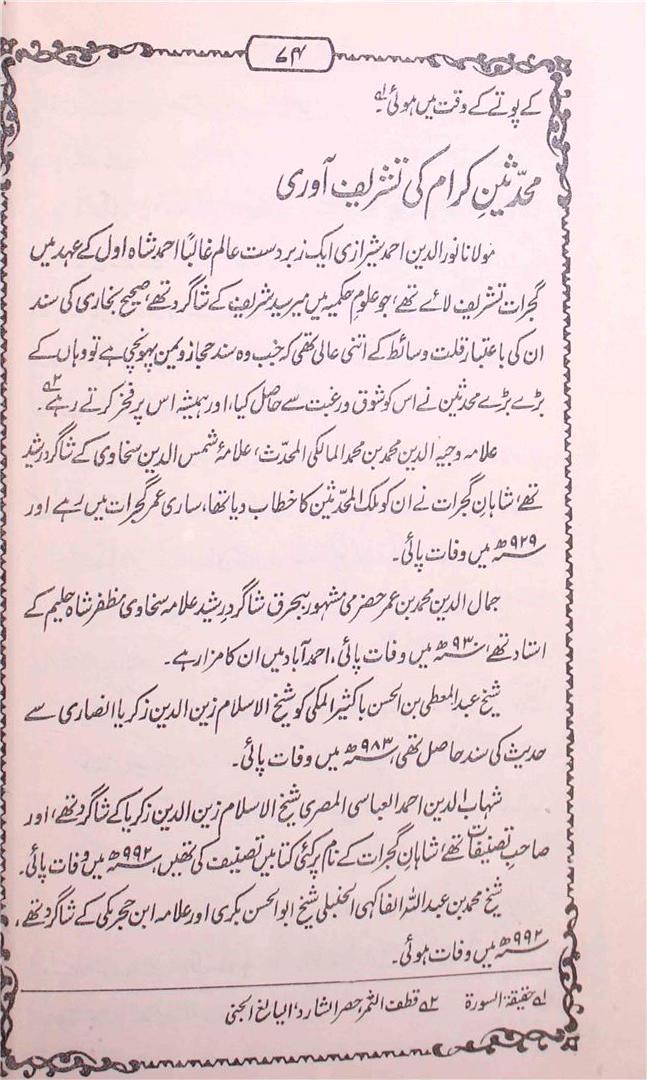 ۷۴
کے پوتے کے وقت میں ہوئی ؎۱
محدّثینِ کرام کی تشریف آوری
مولانا نور الدین احمد شیرازی ایک زبردست عالم غالبًا احمد شاہ اول کے عہد میں
گجرات تشریف لائے تھے، جو علومِ حکمیہ میں میر سید شریف کے شاگرد تھے، صحیح بخاری کی سند
ان کی باعتبار قلت وسائط کے اتنی عالی تھی کہ جب وہ سند حجاز و یمن پہونچی ہے تو وہاں کے
بڑے بڑے محدثین نے اس کو شوق و رغبت سے حاصل کیا، اور ہمیشہ اس پر فخر کرتے رہے ؎۲۔
علامہ وجیہ الدین محمد بن محمد المالکی المحدّث، علامۂ شمس الدین سخاوی کے شاگرد رشید
تھے، شاہانِ گجرات نے ان کو ملک المحدّثین کا خطاب دیا تھا، ساری عمر گجرات میں رہے اور
۹۲۹ھ میں وفات پائی۔
جمال الدین محمد بن عمر حضرمی مشہور ببحرق شاگردِ رشید علامہ سخاوی مظفر شاہ حلیم کے
استاد تھے، ۹۳۰ھ میں وفات پائی، احمد آباد میں ان کا مزار ہے۔
شیخ عبد المعطی بن الحسن باکثیر المکی کو شیخ الاسلام زین الدین زکریا انصاری سے
حدیث کی سند حاصل تھی، ۹۸۳ھ میں وفات پائی۔
شہاب الدین احمد العباسی المصری شیخ الاسلام زین الدین زکریا کے شاگرد تھے، اور
صاحبِ تصنیفات تھے، شاہان گجرات کے نام پر کئی کتابیں تصنیف کی تھیں، ۹۹۲ھ میں وفات پائی۔
شیخ محمد بن عبد اللہ الفاکہی الحنبلی شیخ ابو الحسن بکری اور علامہ ابن حجر مکی کے شاگرد تھے،
۹۹۲ھ میں وفات ہوئی۔
؎۱ حقیقۃ السورۃ ؎۲ قطف الثمر، حصر الشارد، الیانع الجنی